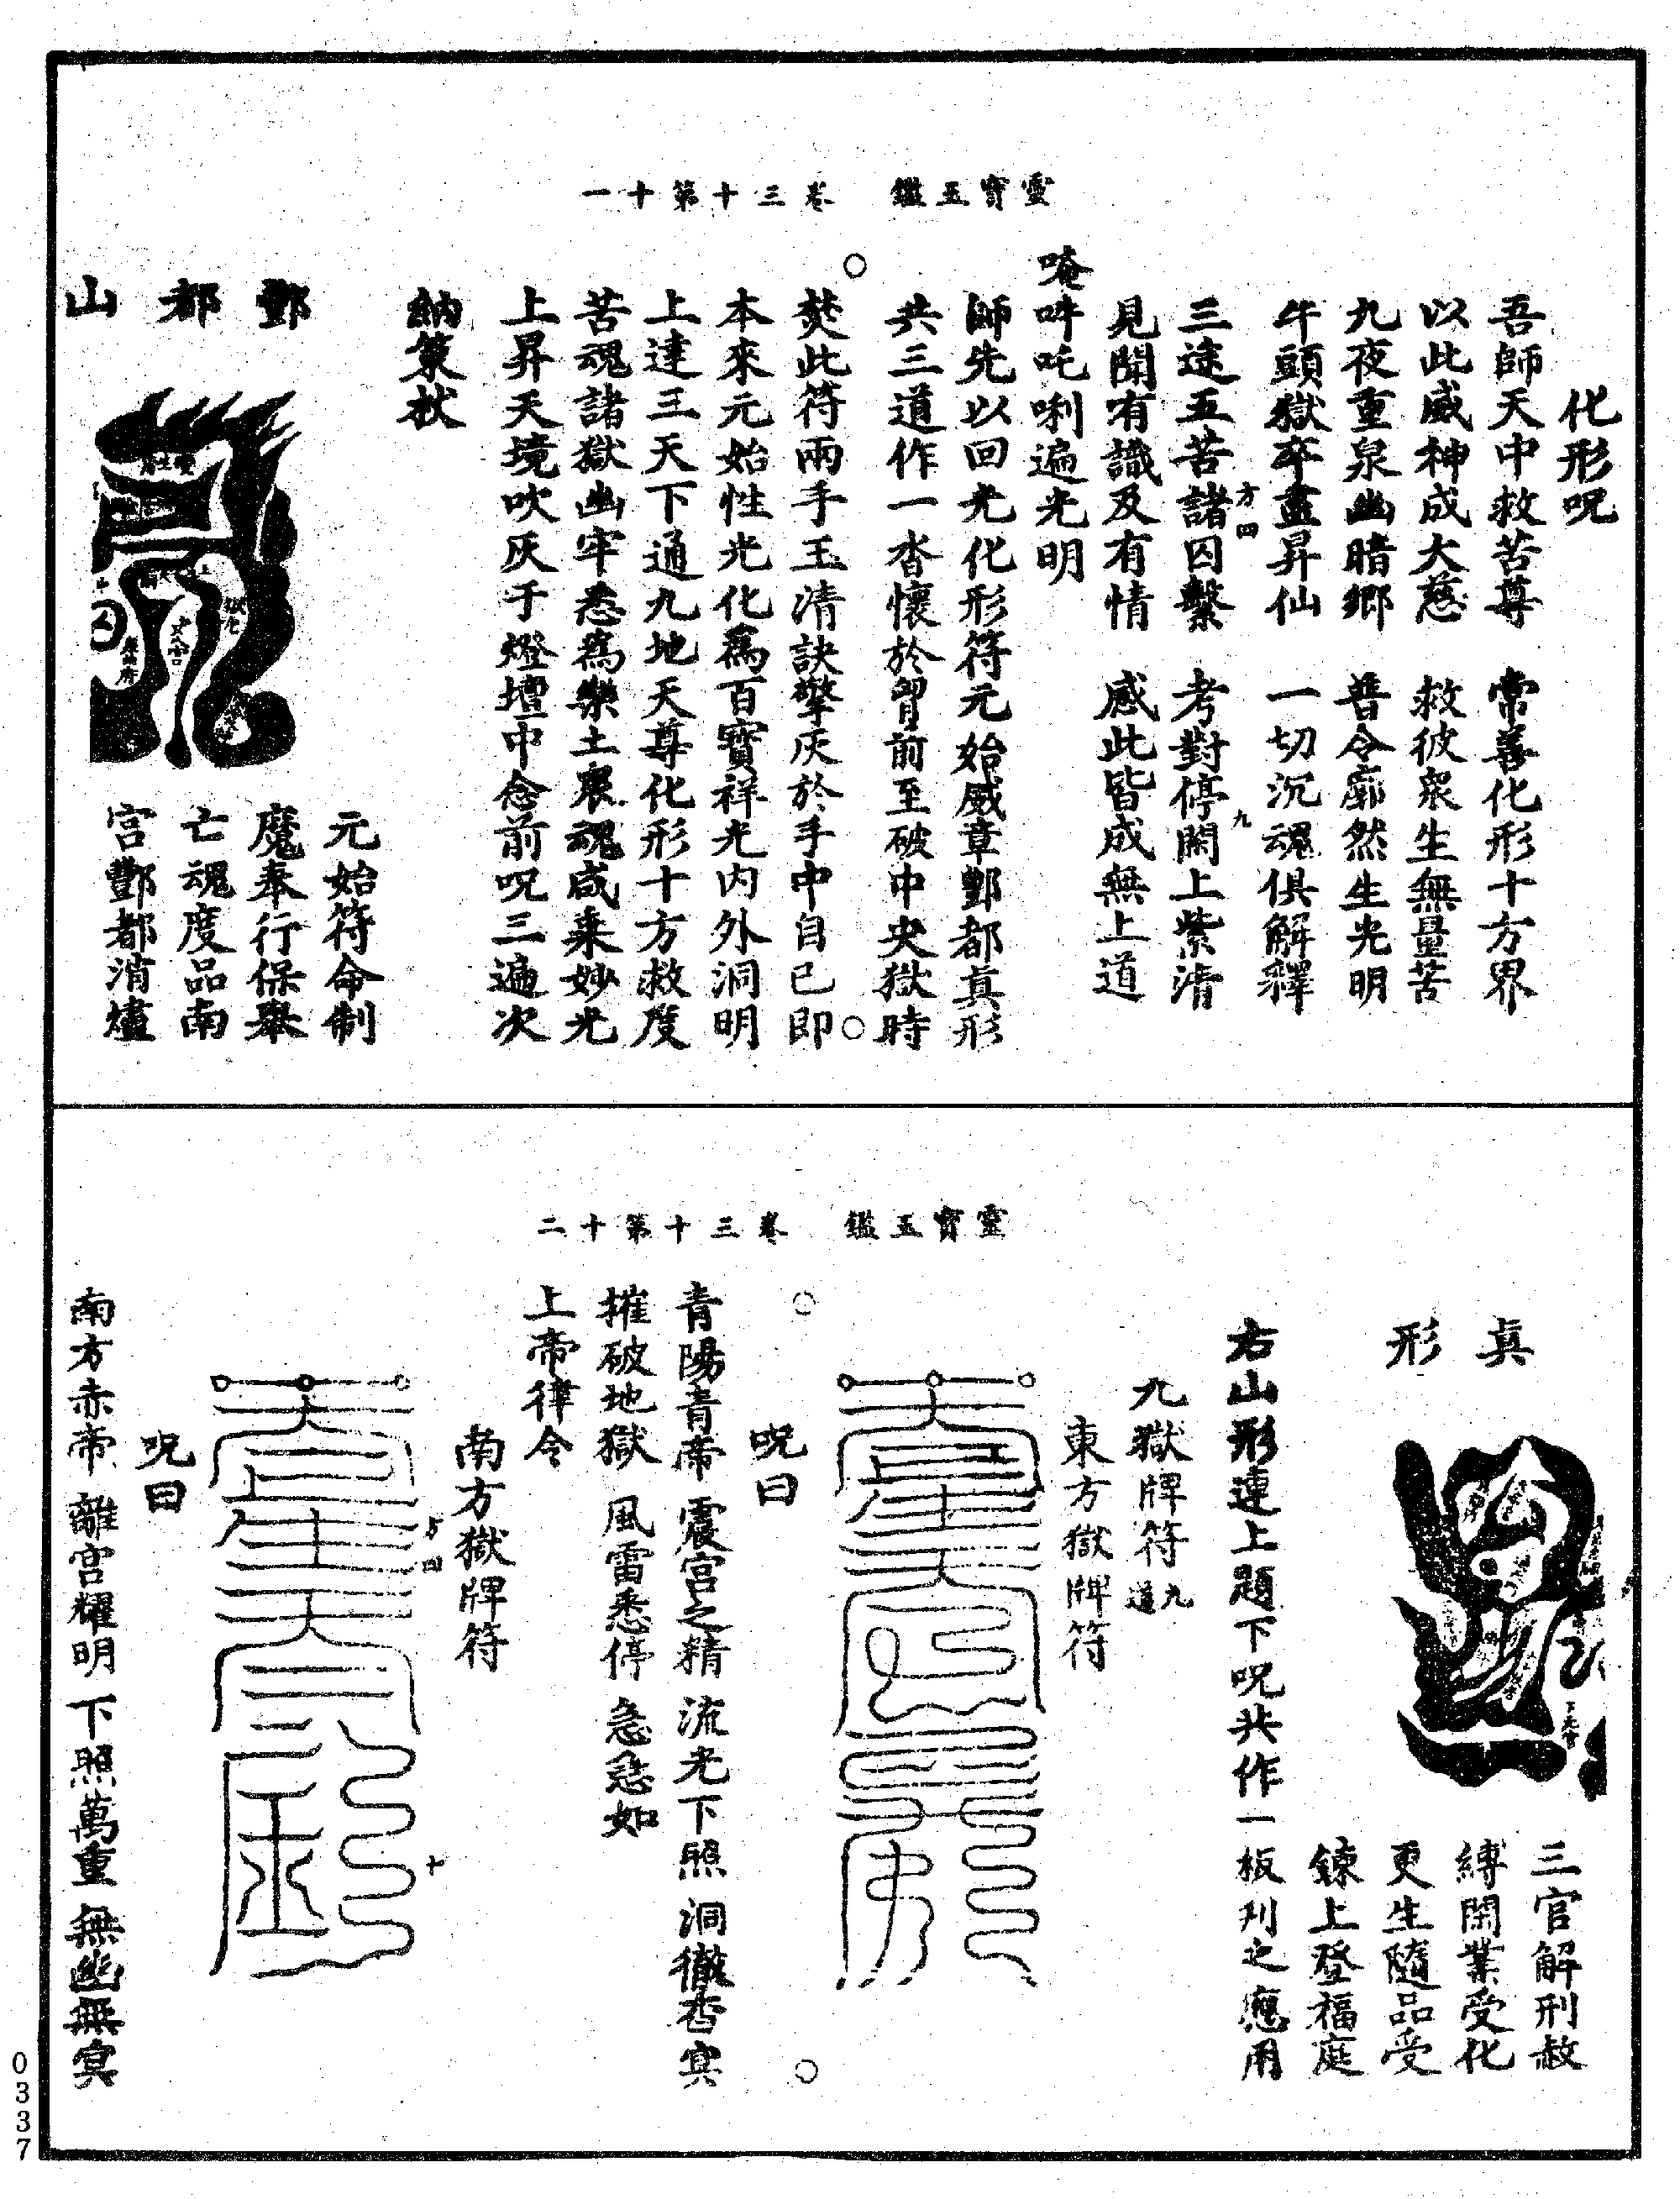 靈寶玉鑑 卷三十 第十一
化形呪
吾師天中救苦尊 常善化形十方界
以此威神成大慈 救彼衆生無量苦
九夜重泉幽暗鄉 普令廓然生光明
牛頭獄卒盡昇仙 一切沉魂俱解釋
方四 九
三途五苦諸囚繫 考對停閑上紫清
見聞有識及有情 感此皆成無上道
唵吽吒唎遍光明
師先以回光化形符元始威章酆都真形
共三道作一沓懷於胷前至破中央獄時
焚此符兩手玉清訣擎灰於手中自己即
本來元始性光化爲百寶祥光内外洞明
上達三天下通九地天尊化形十方救度
苦魂諸獄幽牢悉爲樂土衆魂咸乘妙光
上昇天境吹灰于燈壇中念前呪三遍次
納策杖
元始符命制
酆
魔奉行保舉
都
亡魂度品南
山
宮酆都消爐
靈寶玉鑑 卷三十 第十二
三官解刑赦
真
縛閑業受化
形
更生隨品受
鍊上登福庭
右山形連上題下呪共作一板刋之應用
九獄牌符九道
東方獄牌符
呪曰
青陽青帝 震宫之精 流光下照 洞徹杳冥
摧破地獄 風雷悉停 急急如
上帝律令
南方獄牌符
方四 十
呪曰
南方赤帝 離宫耀明 下照萬重 無幽無冥
0337